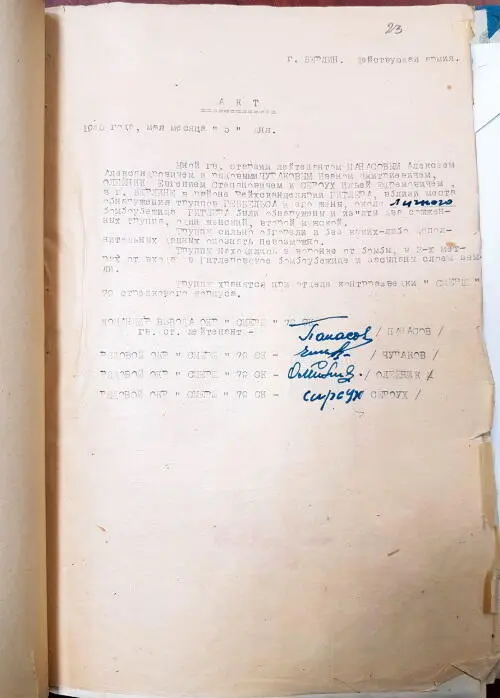 23
г. БЕРЛИН. Действующая армия.
А К Т
1945 года, мая месяца " 5 " дня.
Мной гв. старшим лейтенантом ПАНАСОВЫМ Алексеем
Александровичем и рядовыми ЧУРАКОВЫМ Иваном Дмитриевичем,
ОЛЕЙНИК Евгением Степановичем и СЕРОУХ Ильей Ефремовичем,
в г. БЕРЛИНЕ в районе Рейхсканцелярии ГИТЛЕРА, вблизи места
обнаружения трупов ГЕББЕЛЬСА и его жены, около личного
бомбоубежища ГИТЛЕРА были обнаружены и изъяты два сожжен-
ных трупа, один женский, второй мужской.
Трупы сильно обгорели и без каких-либо допол-
нительных данных опознать невозможно.
Трупы находились в воронке от бомбы, в 3-х мет-
рах от входа в Гитлеровское бомбоубежище и засыпаны слоем зем-
ли.
Трупы хранятся при отделе контрразведки " СМЕРШ "
79 стрелкового корпуса.
КОМАНДИР ВЗВОДА ОКР " СМЕРШ " 79 СК
гв. ст. лейтенант - Панасов / ПАНАСОВ /
РЯДОВОЙ ОКР " СМЕРШ " 79 СК - / ЧУРАКОВ /
РЯДОВОЙ ОКР " СМЕРШ " 79 СК - Олейник / ОЛЕЙНИК /
РЯДОВОЙ ОКР " СМЕРШ " 79 СК - сироух СЕРОУХ /